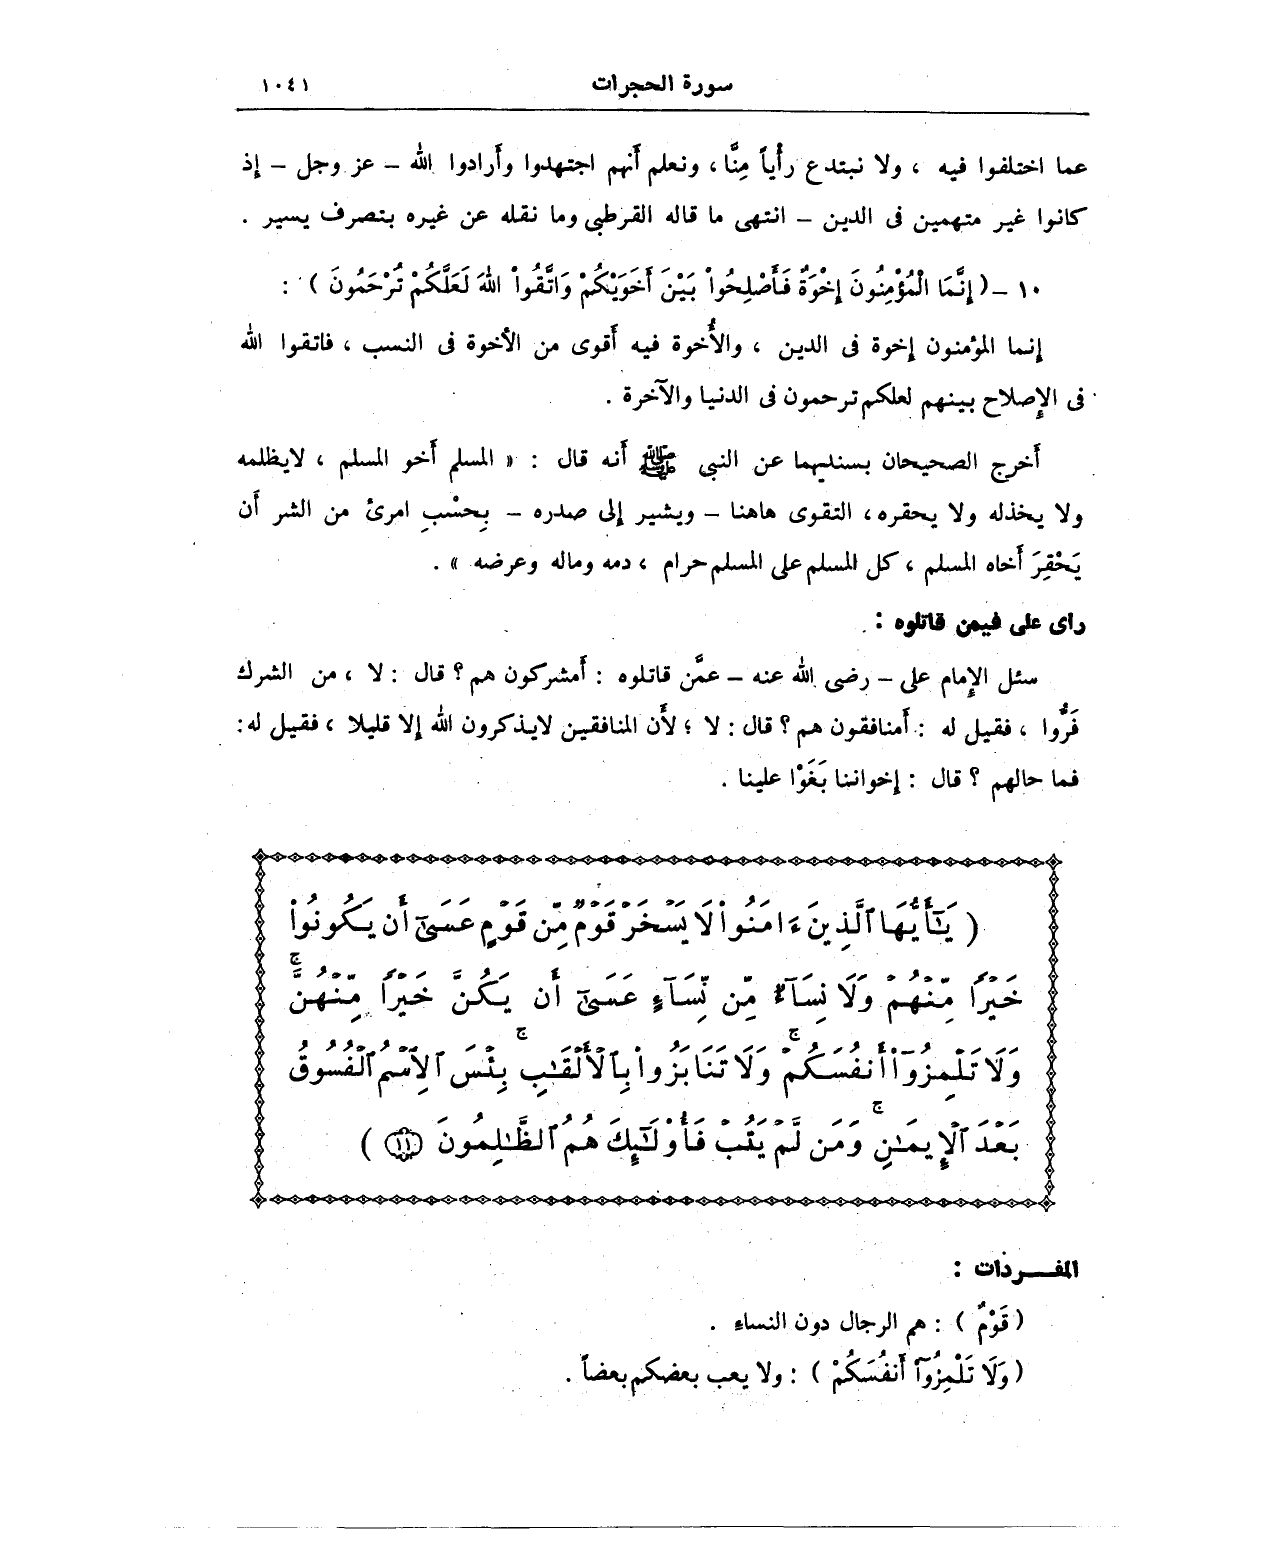 سورة الحجرات ١٠٤١
عما اختلفوا فيه ، ولا نبتدع رأْياً مِنَّا ، ونعلم أَنهم اجتهدوا وأَرادوا الله – عز وجل – إذ
كانوا غير متهمين فى الدين – انتهى ما قاله القرطبى وما نقله عن غيره بتصرف يسير .
١٠ – ( إِنَّمَا الْمُؤْمِنُونَ إِخْوَةٌ فَأَصْلِحُواْ بَيْنَ أَخَوَيْكُمْ وَاتَّقُواْ اللهَ لَعَلَّكُمْ تُرْحَمُونَ ) :
إِنما المؤمنون إِخوة فى الدين ، والأُخوة فيه أَقوى من الأخوة فى النسب ، فاتقوا الله
فى الإِصلاح بينهم لعلكم ترحمون فى الدنيا والآخرة .
أَخرج الصحيحان بسنديهما عن النبى ﷺ أَنه قال : « المسلم أَخو المسلم ، لايظلمه
ولا يخذله ولا يحقره ، التقوى هاهنا – ويشير إلى صدره – بِحسْبِ امرئ من الشر أَن
يَحْقِرَ أَخاه المسلم ، كل المسلم على المسلم حرام ، دمه وماله وعرضه » .
راى على فيمن قاتلوه :
سئل الإِمام على – رضى الله عنه – عمَّن قاتلوه : أَمشركون هم ؟ قال : لا ، من الشرك
فَرُّوا ، فقيل له : أَمنافقون هم ؟ قال : لا ؛ لأَن المنافقين لايذكرون الله إلا قليلا ، فقيل له :
فما حالهم ؟ قال : إخواننا بَغَوْا علينا .
( يَٰٓأَيُّهَا ٱلَّذِينَ ءَامَنُواْ لَا يَسْخَرْ قَوْمٌ مِّن قَوْمٍ عَسَىٰٓ أَن يَكُونُواْ
خَيْرًا مِّنْهُمْ وَلَا نِسَآءٌ مِّن نِّسَآءٍ عَسَىٰٓ أَن يَكُنَّ خَيْرًا مِّنْهُنَّ ۖ
وَلَا تَلْمِزُوٓاْ أَنفُسَكُمْ ۖ وَلَا تَنَابَزُواْ بِٱلْأَلْقَٰبِ ۖ بِئْسَ ٱلِٱسْمُ ٱلْفُسُوقُ
بَعْدَ ٱلْإِيمَٰنِ ۚ وَمَن لَّمْ يَتُبْ فَأُوْلَٰٓئِكَ هُمُ ٱلظَّٰلِمُونَ ۝١١ )
المفـــردات :
( قَوْمٌ ) : هم الرجال دون النساء .
( وَلَا تَلْمِزُوٓاْ أَنفُسَكُمْ ) : ولا يعب بعضكم بعضاً .